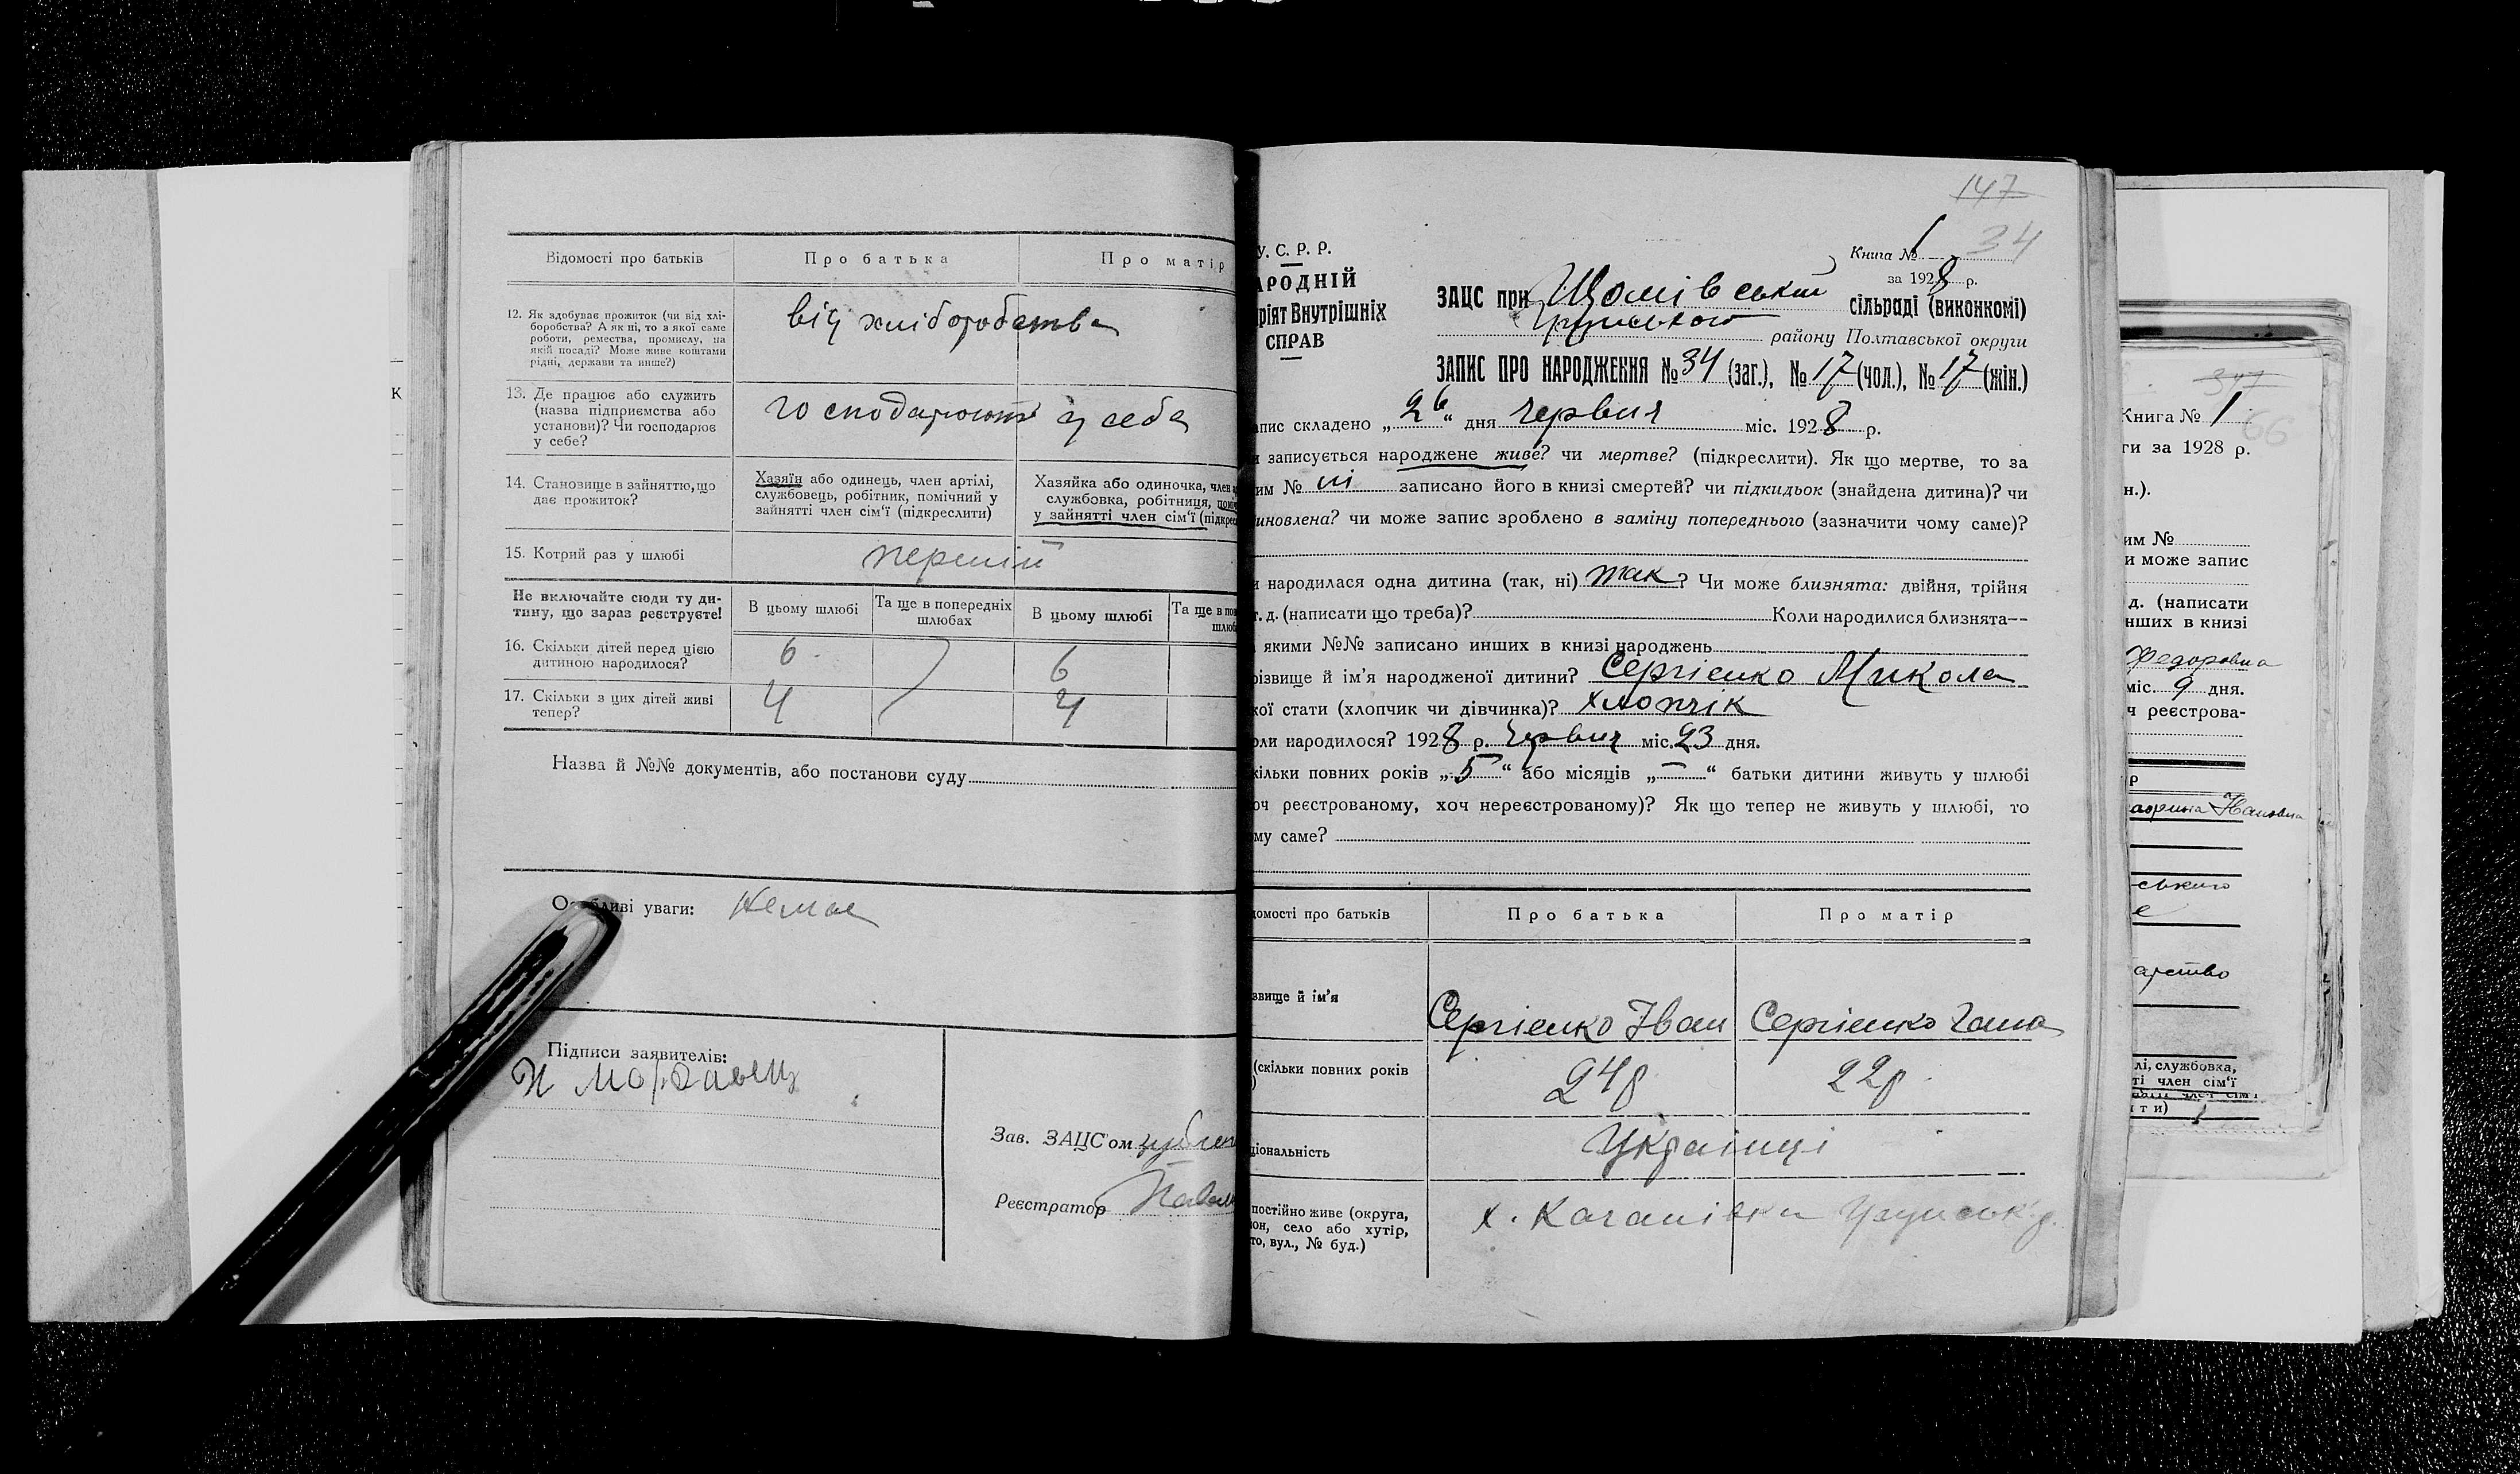 Відомості про батьків
Про батька
Про матір
12. Як здобуває прожиток (чи від хлі-
боробства? А як ні, то з якої саме
роботи, ремества, промислу, на
якій посаді? Може живе коштами
рідні, держави та инше?)
від хліборобства
13. Де працює або служить
(назва підприємства або
установи)? Чи господарює
у себе?
господарюють у себе
14. Становище в зайняттю, що
дає прожиток?
Хазяїн або одинець, член артілі,
службовець, робітник, помічний у
зайнятті член сім'ї (підкреслити)
Хазяйка або одиночка, член
службовка, робітниця,
у зайнятті член сім'ї
15. Котрий раз у шлюбі
першій
Не включайте сюди ту ди-
тину, що зараз реєструєте!
В цьому шлюбі
Та ще в попередніх
шлюбах
В цьому шлюбі
Та ще в
16. Скільки дітей перед цією
дитиною народилося?
6
6
17. Скільки з цих дітей живі
тепер?
4
4
Назва й №№ документів, або постанови суду
Особливі уваги: Немає
Підписи заявителів:
Зав. ЗАЦС'ом
Реєстратор
147
34
У. С. Р. Р.
АРОДНІЙ
ріят Внутрішніх
СПРАВ
Книга № 1
за 1928 р.
ЗАЦС при Щомівській сільраді (виконкомі)
Грунського району Полтавської округи
ЗАПИС ПРО НАРОДЖЕННЯ № 34 (заг.), № 17 (чол.), № 17 (жін.)
апис складено „26“ дня червня міс. 1928 р.
и записується народжене живе? чи мертве? (підкреслити). Як що мертве, то за
им № записано його в книзі смертей? чи підкидьок (знайдена дитина)? чи
иновлена? чи може запис зроблено в заміну попереднього (зазначити чому саме)?
и народилася одна дитина (так, ні) так? Чи може близнята: двійня, трійня
т. д. (написати що треба)? Коли народилися близнята--
якими №№ записано инших в книзі народжень
різвище й ім'я народженої дитини? Сергієнко Микола
кої стати (хлопчик чи дівчинка)? хлопчік
оли народилося? 1928 р. червня міс. 23 дня.
кільки повних років „5“ або місяців „—“ батьки дитини живуть у шлюбі
оч реєстрованому, хоч нереєстрованому)? Як що тепер не живуть у шлюбі, то
му саме?
домості про батьків
Про батька
Про матір
звище й ім'я
Сергієнко Іван
Сергієнко Ганна
(скільки повних років
24 р
22 р
ціональність
Українці
постійно живе (округа,
он, село або хутір,
то, вул., № буд.)
х. Качанівка Грунськ. р.
347
Книга № 1
66
ги за 1928 р.
н.).
им №
и може запис
д. (написати
нших в книзі
Федоровна
міс. 9 дня.
ч реєстрова-
р
Івановна
ського
арство
лі, службовка,
ті член сім'ї